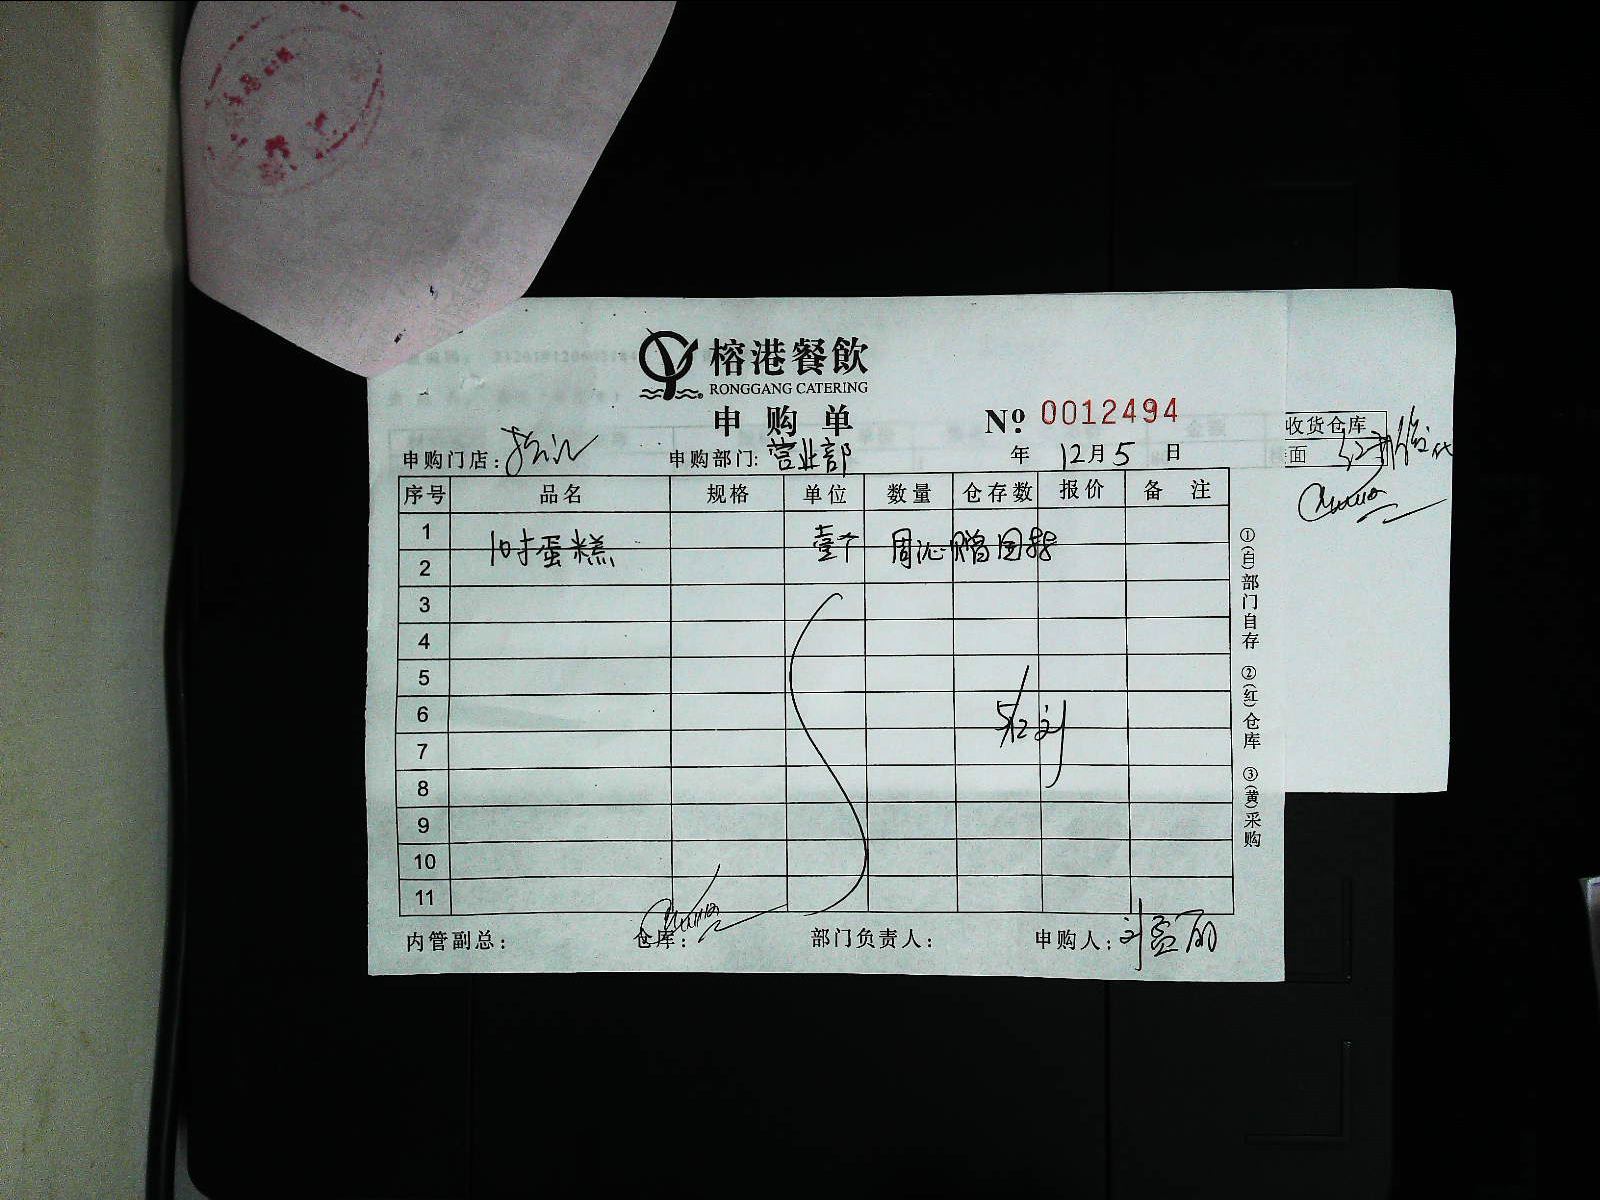 榕港餐飲
RONGGANG CATERING
申购单
№ 0012494
申购门店: 申购部门: 营业部 年 12月5日
序号 品名 规格 单位 数量 仓存数 报价 备注
1
10寸蛋糕 壹个 周沁
2
3
4
5
6
5/12 刘
7
8
9
10
11
内管副总: 仓库: 部门负责人: 申购人: 刘孟丽
①(自)部门自存 ②(红)仓库 ③(黄)采购
收货仓库
面